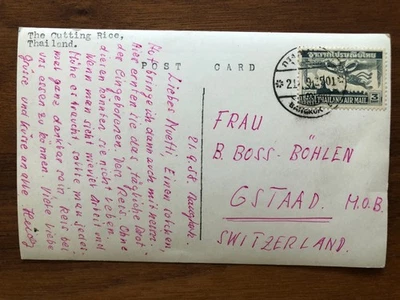 The Cutting Rice,
Thailand.
POST CARD
21.9.58. Bangkok.
Liebes Muetti, Einen solchen
Hut bringe ich dann auch mit heim.
Hier ernten sie das tägliche Brot
der Eingeborenen. Den Reis. Ohne
diesen könnten sie nicht leben.
Wenn man sieht wieviel Arbeit und
Mühe es braucht, sollte man jedes-
mal ganz dankbar sein, Reis bei
essen zu können. Viele liebe
und an alle
THAILAND AIR MAIL
BANGKOK
FRAU
B. BOSS-BÖHLEN
GSTAAD. M.O.B.
SWITZERLAND.